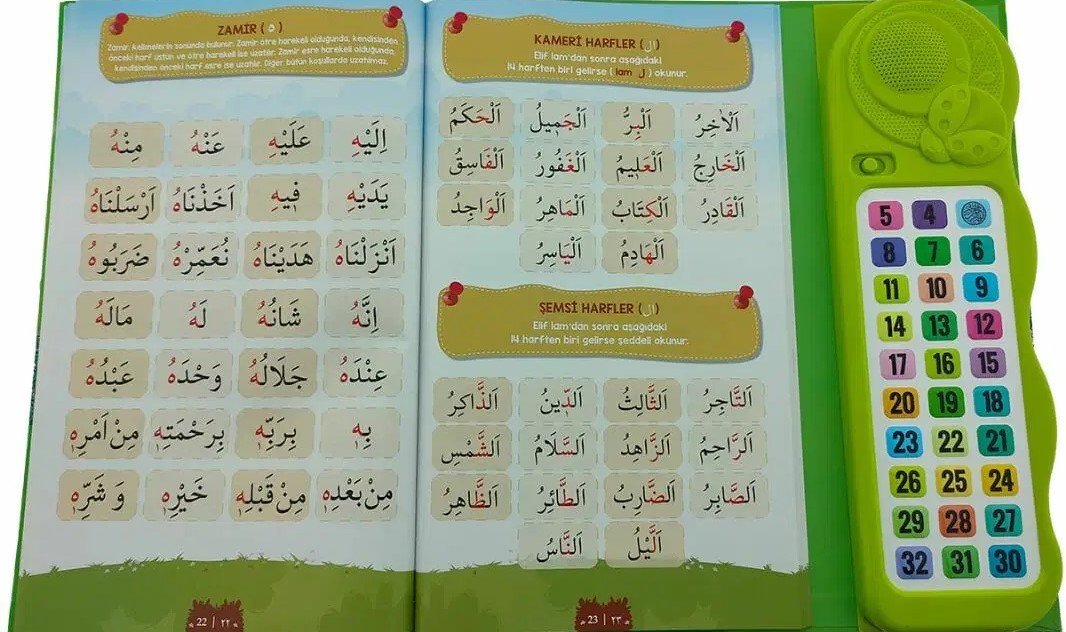 ZAMİR ( ه )
Zamir, kelimelerin sonunda bulunur. Zamir ötre harekeli olduğunda, kendisinden
önceki harf üstün ve ötre harekeli ise uzatılır. Zamir esre harekeli olduğunda,
kendisinden önceki harf esre ise uzatılır. Diğer bütün koşullarda uzatılmaz.
اِلَيْهِ عَلَيْهِ عَنْهُ مِنْهُ
يَدَيْهِ فٖيهِ اَخَذْنَاهُ اَرْسَلْنَاهُ
اَنْزَلْنَاهُ هَدَيْنَاهُ نُعَمِّرْهُ ضَرَبُوهُ
اِنَّهُ شَانُهُ لَهُ مَالَهُ
عِنْدَهُ جَلَالُهُ وَحْدَهُ عَبْدُهُ
بِهٖ بِرَبِّهٖ بِرَحْمَتِهٖ مِنْ اَمْرِهٖ
مِنْ بَعْدِهٖ مِنْ قَبْلِهٖ خَيْرِهٖ وَ شَرِّهٖ
22 | ٢٢
KAMERİ HARFLER (ال)
Elif lam'dan sonra aşağıdaki
14 harften biri gelirse ( lam ل ) okunur.
اَلْاٰخِرُ اَلْبِرُّ اَلْجَمٖيلُ اَلْحَكَمُ
اَلْخَارِجُ اَلْعَلٖيمُ اَلْغَفُورُ اَلْفَاسِقُ
اَلْقَادِرُ اَلْكِتَابُ اَلْمَاهِرُ اَلْوَاجِدُ
اَلْهَادِمُ اَلْيَاسِرُ
ŞEMSİ HARFLER (ال)
Elif lam'dan sonra aşağıdaki
14 harften biri gelirse şeddeli okunur.
اَلتَّاجِرُ اَلثَّالِثُ اَلدّٖينُ اَلذَّاكِرُ
اَلرَّاحِمُ اَلزَّاهِدُ اَلسَّلَامُ اَلشَّمْسِ
اَلصَّابِرُ اَلضَّارِبُ اَلطَّائِرُ اَلظَّاهِرُ
اَلَّيْلُ اَلنَّاسُ
23 | ٢٣
5 4
8 7 6
11 10 9
14 13 12
17 16 15
20 19 18
23 22 21
26 25 24
29 28 27
32 31 30